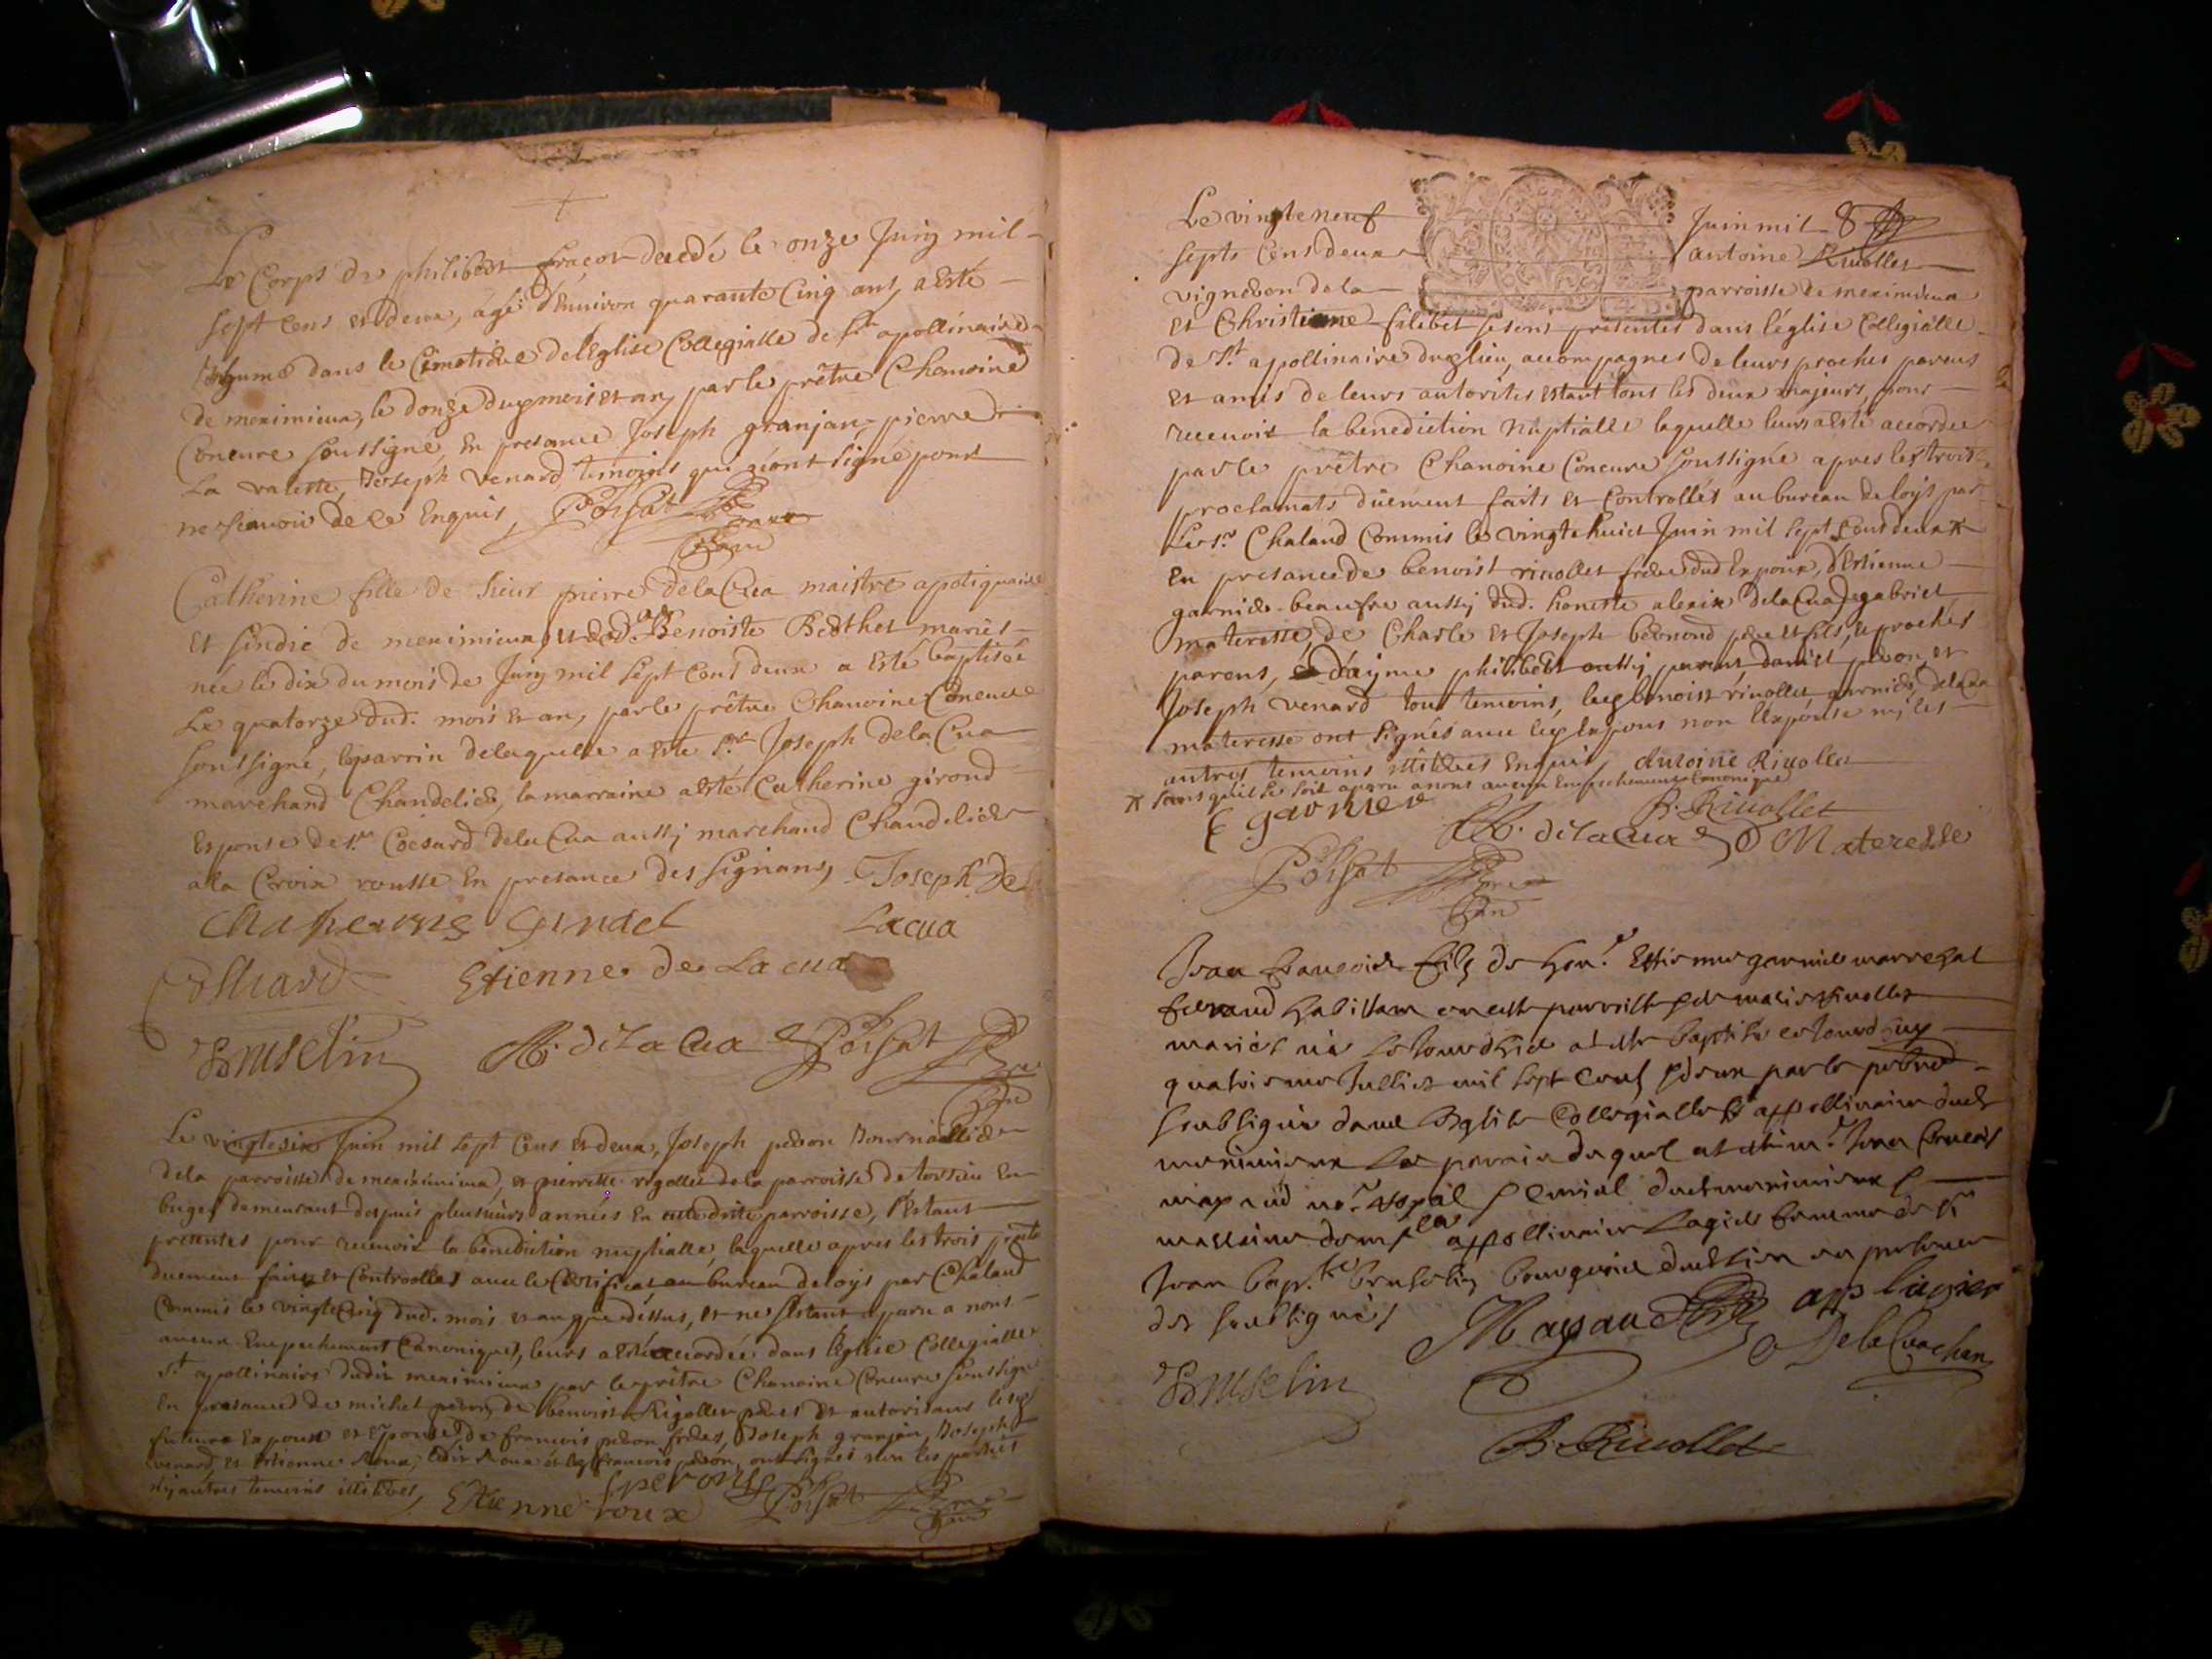 Le Corps de philibert fraçot decedé le onze Juin mil
sept cens et deux, âgé d'Environ quarante Cinq ans, a Esté
Inhumé dans le Cimetiere de l'Eglise Collegialle de St apollinaire
de meximieux, le douze duq mois et an, par le prêtre Chanoine
Concuré soussigné En presance Joseph granjan, pierre
La valette, Joseph venard temoins qui n'ont signé pour
ne sçavoir de ce Enquis, Poisat
Catherine fille de sieur pierre dela Cua maistre apotiquaire
Et sindic de meximieux, et de d. Benoiste Berthet mariés
née le dix du mois de Juin mil sept cens deux a Esté baptisée
Le quatorze dud. mois et an, par le prêtre Chanoine Concuré
soussigné, le parrin delaquelle a esté Sr Joseph dela Cua
marchand Chandelier, la marraine a esté Catherine girond
Espouse de Sr Coesard dela Cua aussy marchand Chandelier
a la Croix rousse En presance des signans, Joseph De
Lacua
Etienne de Lacua
Bruselin A. de la Cua Poisat
Le vingtesix Juin mil sept Cens et deux, Joseph peron Journallier
dela parroisse de meximieux, et pierrette rigollet de la parroisse de torsieu En
bugey demeurant depuis plusieurs années En cette ditte parroisse, s'estant
presentés pour recevoir la benediction nuptialle, laquelle apres les trois
duement faits et Controllés avec le Certificat au bureau de loyis par Chaland
Commis le vingtecinq dud. mois et an que dessus, et ne s'estant aparu a nous
aucun Empechement Canonique, leurs a esté accordée dans l'Eglise Collegialle
St apollinaire dudit meximieux par le prêtre Chanoine Concuré soussigné
En presance de michel peron, de benoist Rigollet peres et autorisans lesq
futurs Espoux et Epouse, de francois peron freres, Joseph granjan, Joseph
venard, et Estienne Roux, ledit Roux et leq francois peron, ont signés non les parties
ny autres temoins illitérés, Etienne roux f peron Poisat
Le vingteneuf Juin mil 8
septs Cens deux antoine Rivollet
vigneron dela parroisse de meximieux
et Christianne filebet se sont presentés dans l'église Collegialle
de St. apollinaire duq lieu, accompagnés de leurs proches parens
et amis de leurs autorités estant tous les deux majeurs, pour
recevoir la benediction nuptialle laquelle leurs a esté accordée
par le prêtre Chanoine Concuré soussigné apres les trois
proclamats düement faits et Controllés au bureau de loyis par
Le Sr Chaland Commis le vingtehuict Juin mil sept Cens deux
En presance de benoist rivollet frere dud Expoux, d'Estienne
garnier beaufre aussy dud. honeste alexix dela Cua, de gabriel
materesse, de Charle et Joseph bernond pere et fils, proches
parens, d'ayme philibert aussy parent, daniel peron, et
Joseph venard tous temoins, leq benoist rivollet garnier, dela Cua
materesse ont signés avec leq Espoux non l'Expouse ny les
autres temoins illitérés Enquis, Antoine Rivollet
sans qu'il se soit aparu a nous aucun Empechement Canonique
E garnier B. Rivollet
A. de la Cua G Materesse
Poisat
Jean francois fils de hon. Estienne garnier mareschal
habittant en cette parroisse de marie Rivollet
mariés né le jourdhier at esté baptisé ce jourdhuy
quatriesme Juillet mil sept cens deux par le prêtre
soubsigné dans l'Eglise Collegialle St appollinaire dud
meximieux le parrain duquel at esté m. Jean francois
majaud no. royal
marraine dam.lle appollinaire Lagier femme de Sr
Jean bap.te bruselin bourgeois dud lieu en presence
des soubsignés
Majaud app lagier
Bruselin
B. Rivollet